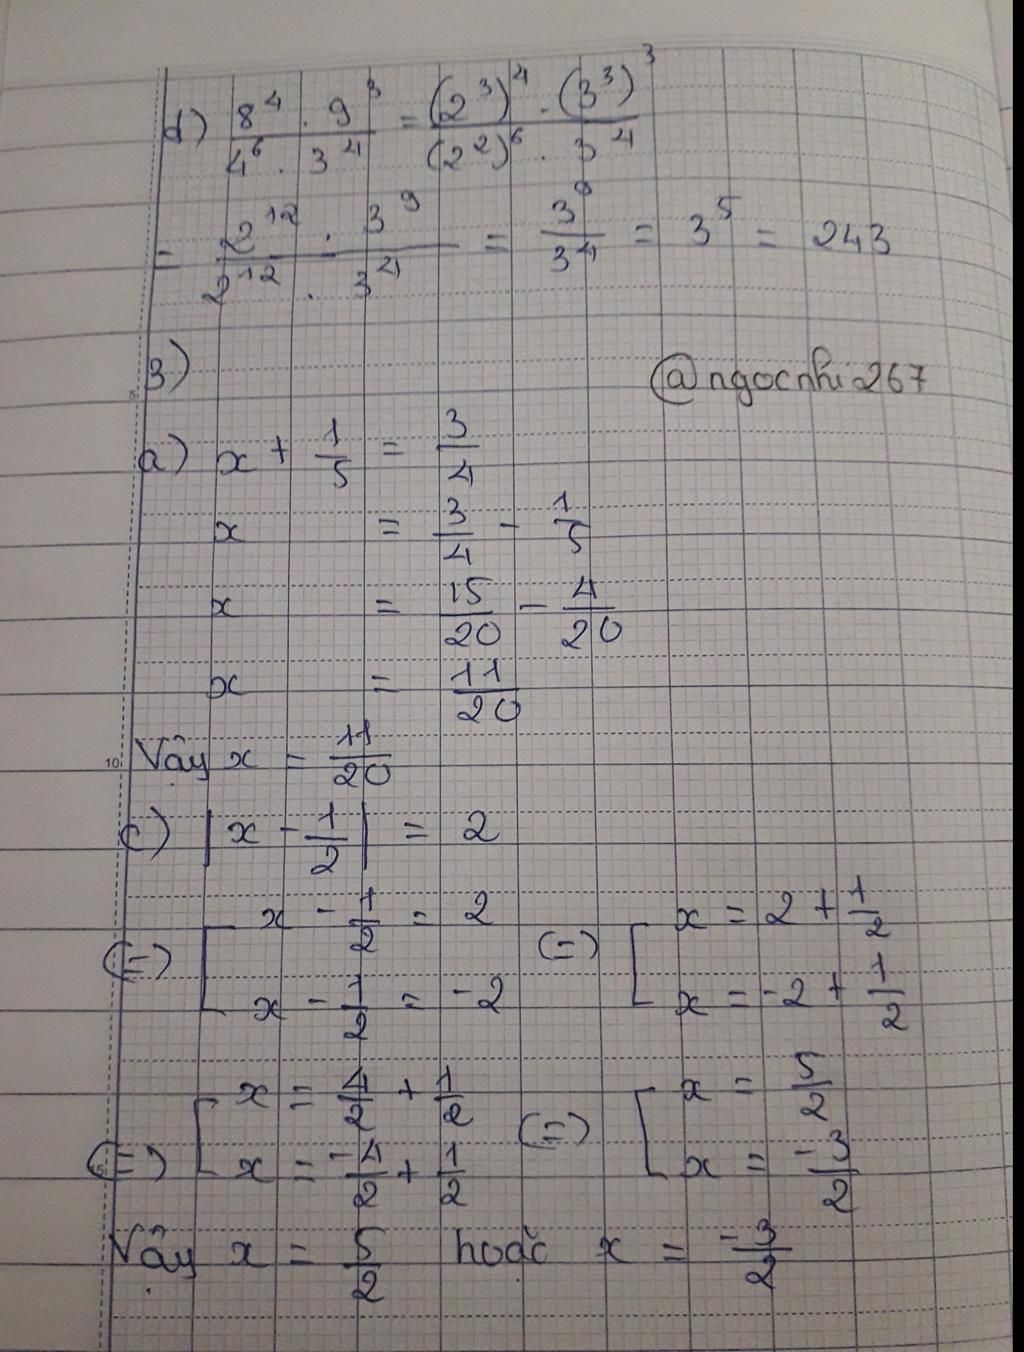 d) \frac{8^4 . 9^3}{4^6 . 3^4} = \frac{(2^3)^4 . (3^3)^3}{(2^2)^6 . 3^4}
= \frac{2^{12} . 3^9}{2^{12} . 3^4} = \frac{3^9}{3^4} = 3^5 = 243
3)
@ngocnhi267
a) x + \frac{1}{5} = \frac{3}{4}
x = \frac{3}{4} - \frac{1}{5}
x = \frac{15}{20} - \frac{4}{20}
x = \frac{11}{20}
10 Vậy x = \frac{11}{20}
c) |x - \frac{1}{2}| = 2
(=) [ x - \frac{1}{2} = 2 (=) [ x = 2 + \frac{1}{2}
x - \frac{1}{2} = -2 x = -2 + \frac{1}{2}
(=) [ x = \frac{4}{2} + \frac{1}{2} (=) [ x = \frac{5}{2}
x = \frac{-4}{2} + \frac{1}{2} x = \frac{-3}{2}
Vậy x = \frac{5}{2} hoặc x = \frac{-3}{2}